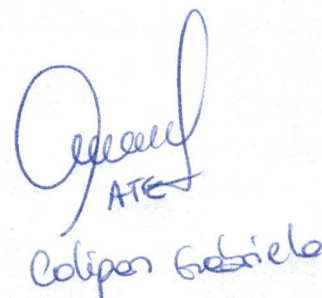 ATE
Colipan Gabriela